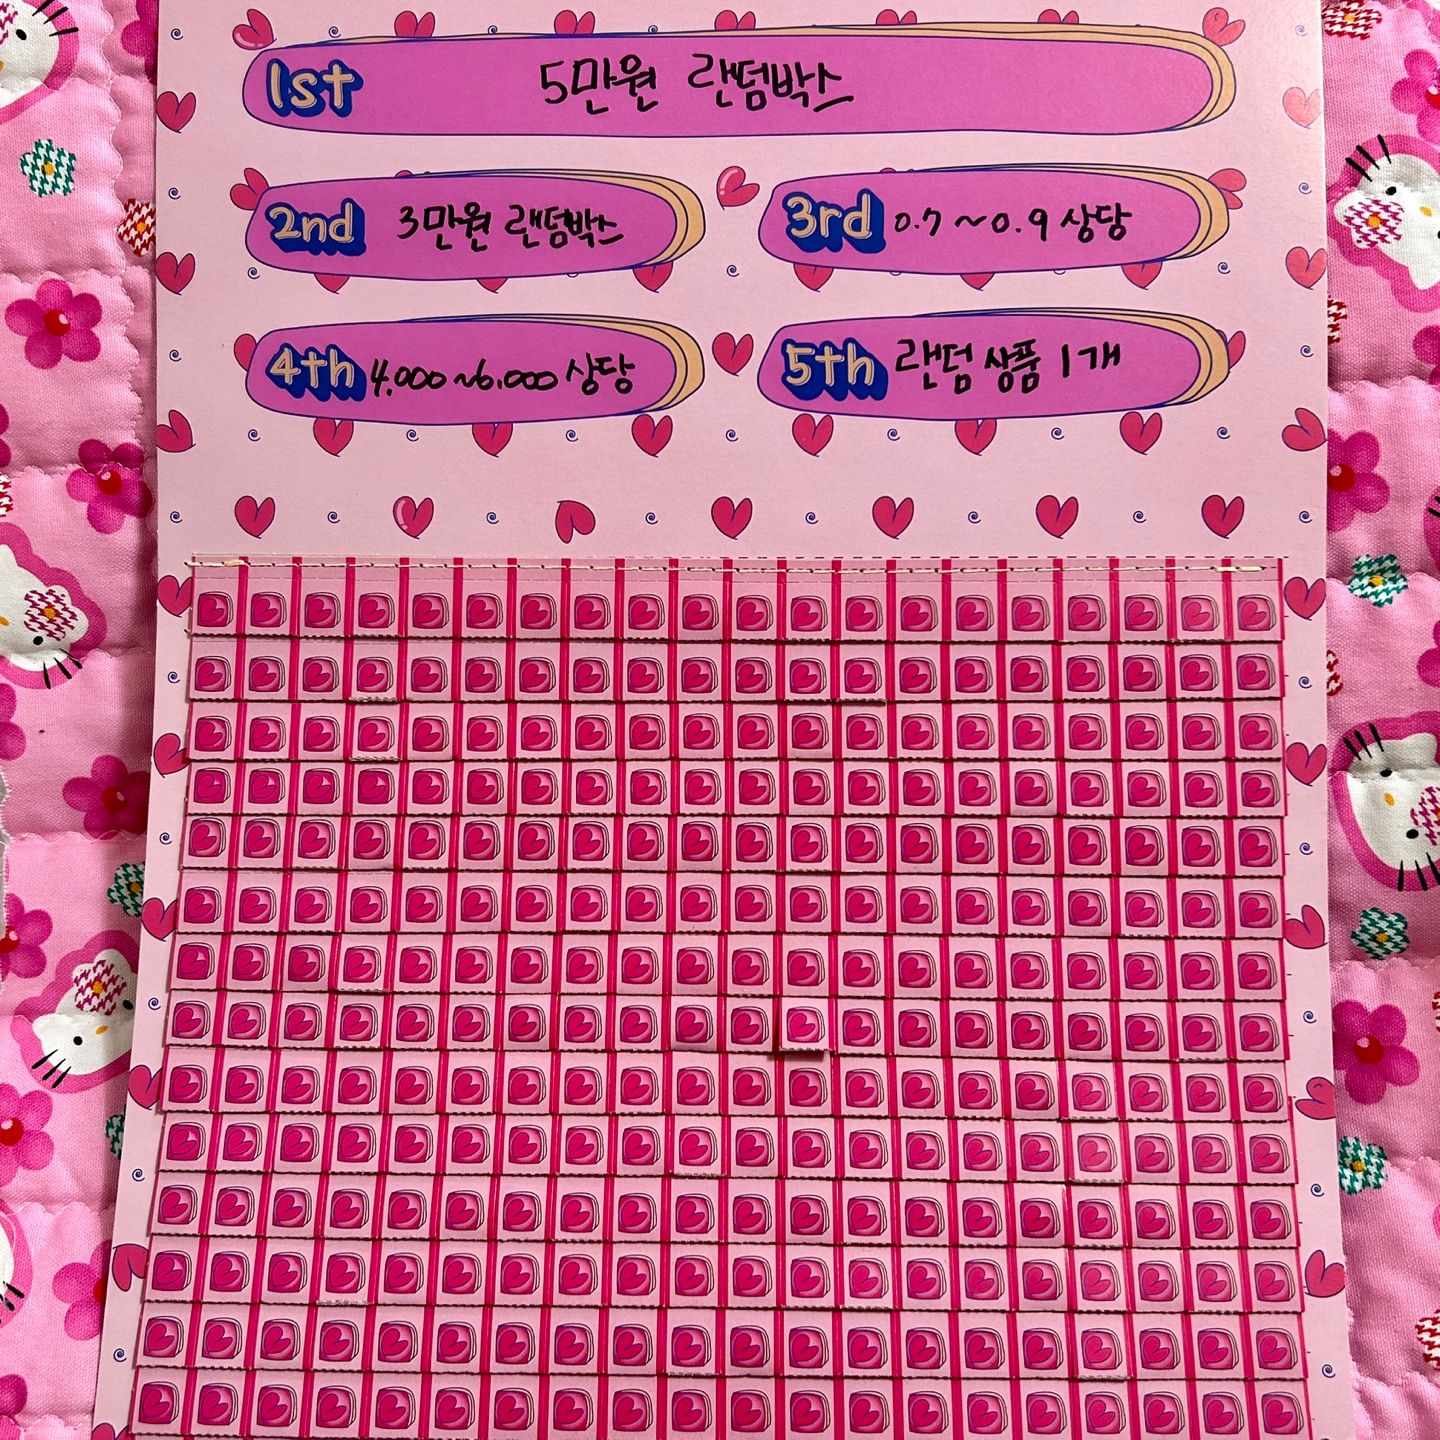 1st 5만원 랜덤박스
2nd 3만원 랜덤박스
3rd 0.7~0.9 상당
4th 4,000~6,000 상당
5th 랜덤 상품 1개